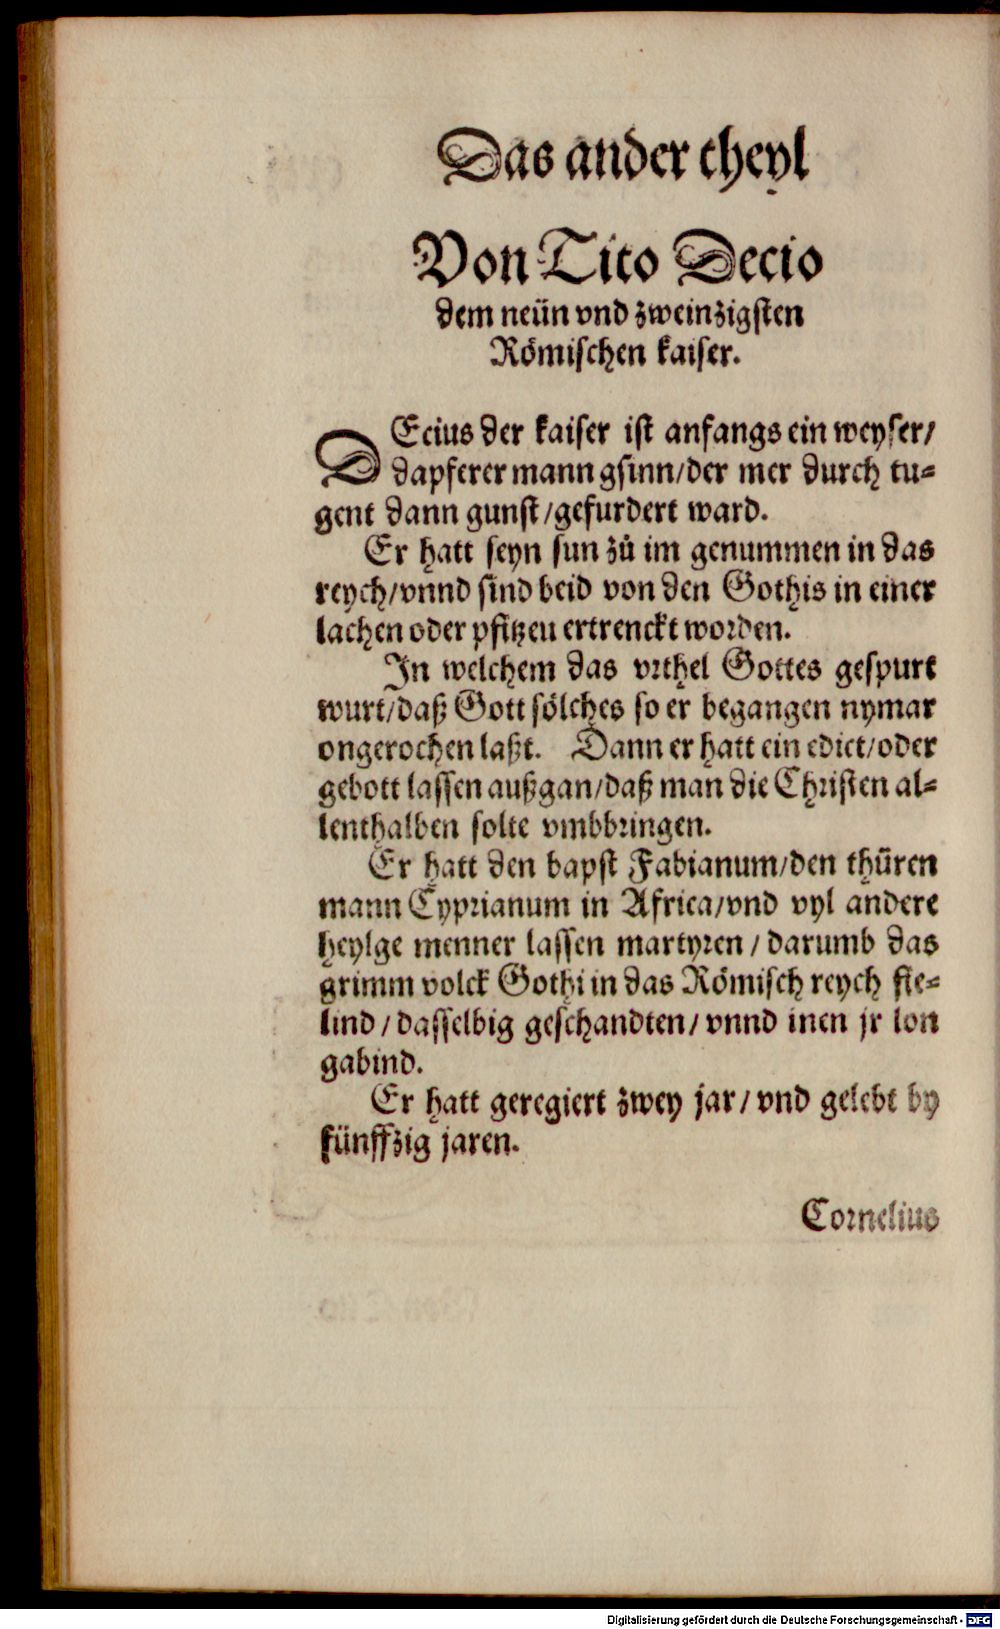 Das ander theyl
Von Tito Decio
dem neün vnd zweinzigsten
Römischen kaiser.
DEcius der kaiser ist anfangs ein weyser/
dapferer mann gsinn/der mer durch tu⸗
gent dann gunst/gefurdert ward.
Er hatt seyn sun zů im genummen in das
reych/vnnd sind beid von den Gothis in einer
lachen oder pfitzen ertrenckt worden.
In welchem das vrthel Gottes gespurt
wurt/daß Gott sölches so er begangen nymar
ongerochen laßt. Dann er hatt ein edict/oder
gebott lassen außgan/daß man die Christen al⸗
lenthalben solte vmbbringen.
Er hatt den bapst Fabianum/den thüren
mann Cyprianum in Africa/vnd vyl andere
heylge menner lassen martyren/darumb das
grimm volck Gothi in das Römisch reych fie⸗
lind/dasselbig geschandten/vnnd inen jr lon
gabind.
Er hatt geregiert zwey jar/vnd gelebt by
fünffzig jaren.
Cornelius
Digitalisierung gefördert durch die Deutsche Forschungsgemeinschaft - DFG